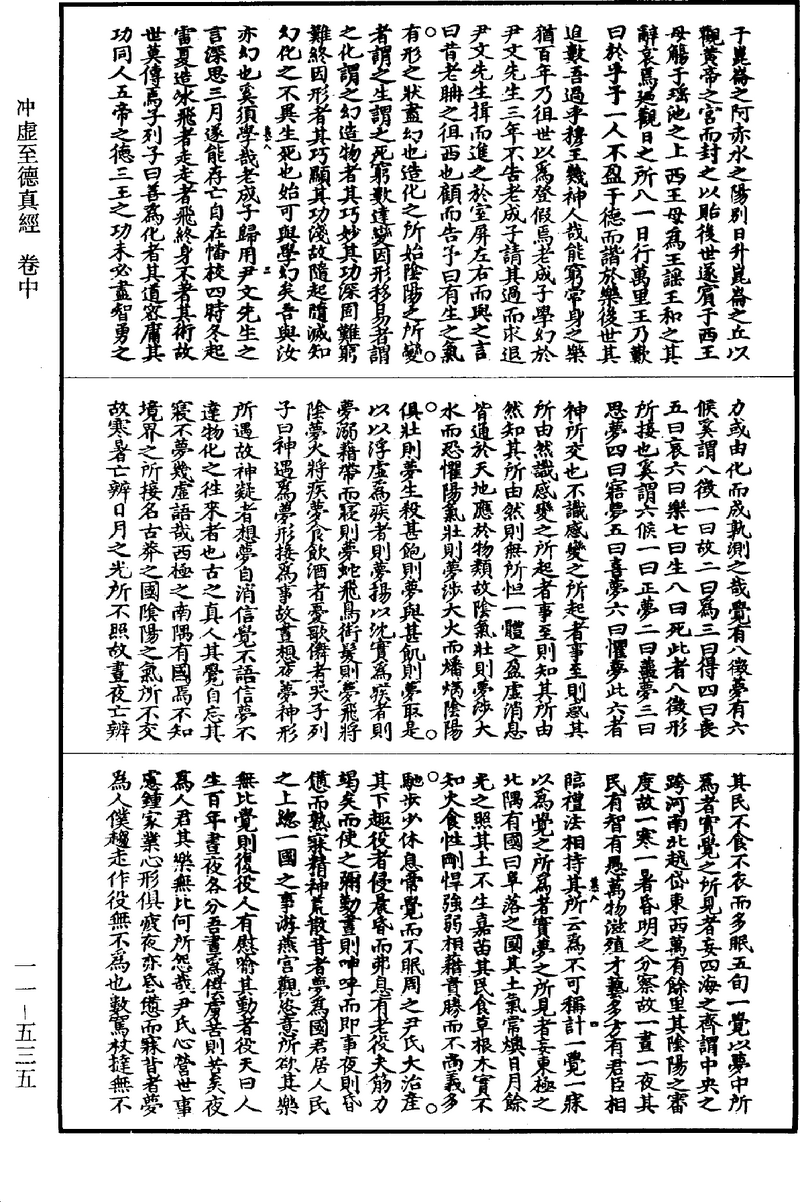 子崑崙之阿亦水之陽別日升崑崙之丘以
觀黃帝之宮而封之以貽後世遂賓于西王
母觴于瑤池之上西王母爲王謠王和之其
辭哀焉廼觀日之所入一日行萬里王乃歎
曰於乎予一人不盈于德而諧於樂後世其
追數吾過乎穆王幾神人哉能窮當身之樂
猶百年乃徂世以爲登假焉老成子學幻於
尹文先生三年不告老成子請其過而求退
尹文先生揖而進之於室屏左右而與之言
曰昔老聃之徂西也顧而告予曰有生之氣
有形之狀盡幻也造化之所始陰陽之所變
者謂之生謂之死窮數達變因形移易者謂
之化謂之幻造物者其巧妙其功深固難窮
難終因形者其巧顯其功淺故隨起隨滅知
幻化之不異生死也始可與學幻矣吾與汝
亦幻也奚須學哉老成子歸用尹文先生之
言深思三月遂能存亡自在憣校四時冬起
雷夏造氷飛者走走者飛終身不著其術故
世莫傳焉子列子曰善爲化者其道密庸其
功同人五帝之德三王之功未必盡智勇之
力或由化而成孰測之哉覺有八徵夢有六
候奚謂八徵一曰故二曰爲三曰得四曰喪
五曰哀六曰樂七曰生八曰死此者八徵形
所接也奚謂六候一曰正夢二曰蘁夢三曰
思夢四曰寤夢五曰喜夢六曰懼夢此六者
神所交也不識感變之所起者事至則惑其
所由然識感變之所起者事至則知其所由
然知其所由然則無所怛一體之盈虛消息
皆通於天地應於物類故陰氣壯則夢涉大
水而恐懼陽氣壯則夢涉大火而燔焫陰陽
俱壯則夢生殺甚飽則夢與甚飢則夢取是
以以浮虛爲疾者則夢揚以沈實爲疾者則
夢溺藉帶而寢則夢蛇飛鳥銜髮則夢飛將
陰夢火將疾夢食飲酒者憂歌儛者哭子列
子曰神遇爲夢形接爲事故晝想夜夢神形
所遇故神凝者想夢自消信覺不語信夢不
達物化之往來者也古之真人其覺自忘其
寢不夢幾虛語哉西極之南隅有國焉不知
境界之所接名古莽之國陰陽之氣所不交
故寒暑亡辨日月之光所不照故晝夜亡辨
其民不食不衣而多眠五旬一覺以夢中所
爲者實覺之所見者妄四海之齊謂中央之
跨河南北越岱東西萬有餘里其陰陽之審
度故一寒一暑昏明之分察故一晝一夜其
民有智有愚萬物滋殖才藝多方有君臣相
臨禮法相持其所云爲不可稱計一覺一寐
以爲覺之所爲者實夢之所見者妄東極之
北隅有國曰阜落之國其土氣常燠日月餘
光之照其土不生嘉苗其民食草根木實不
知火食性剛悍強弱相藉貴勝而不尚義多
馳步少休息常覺而不眠周之尹氏大治產
其下趣役者侵晨昏而弗息有老役夫筋力
竭矣而使之彌勤晝則呻呼而即事夜則昏
憊而熟寐精神荒散昔昔夢爲國君居人民
之上緫一國之事游燕宮觀恣意所欲其樂
無比覺則復役人有慰喻其懃者役夫曰人
生百年晝夜各分吾晝爲僕虜苦則苦矣夜
爲人君其樂無比何所怨哉尹氏心營世事
慮鍾家業心形俱疲夜亦昏憊而寐昔昔夢
爲人僕趨走作役無不爲也數罵杖撻無不
卷八
二
卷八
四
冲虛至德真經 卷中
一一—五三五